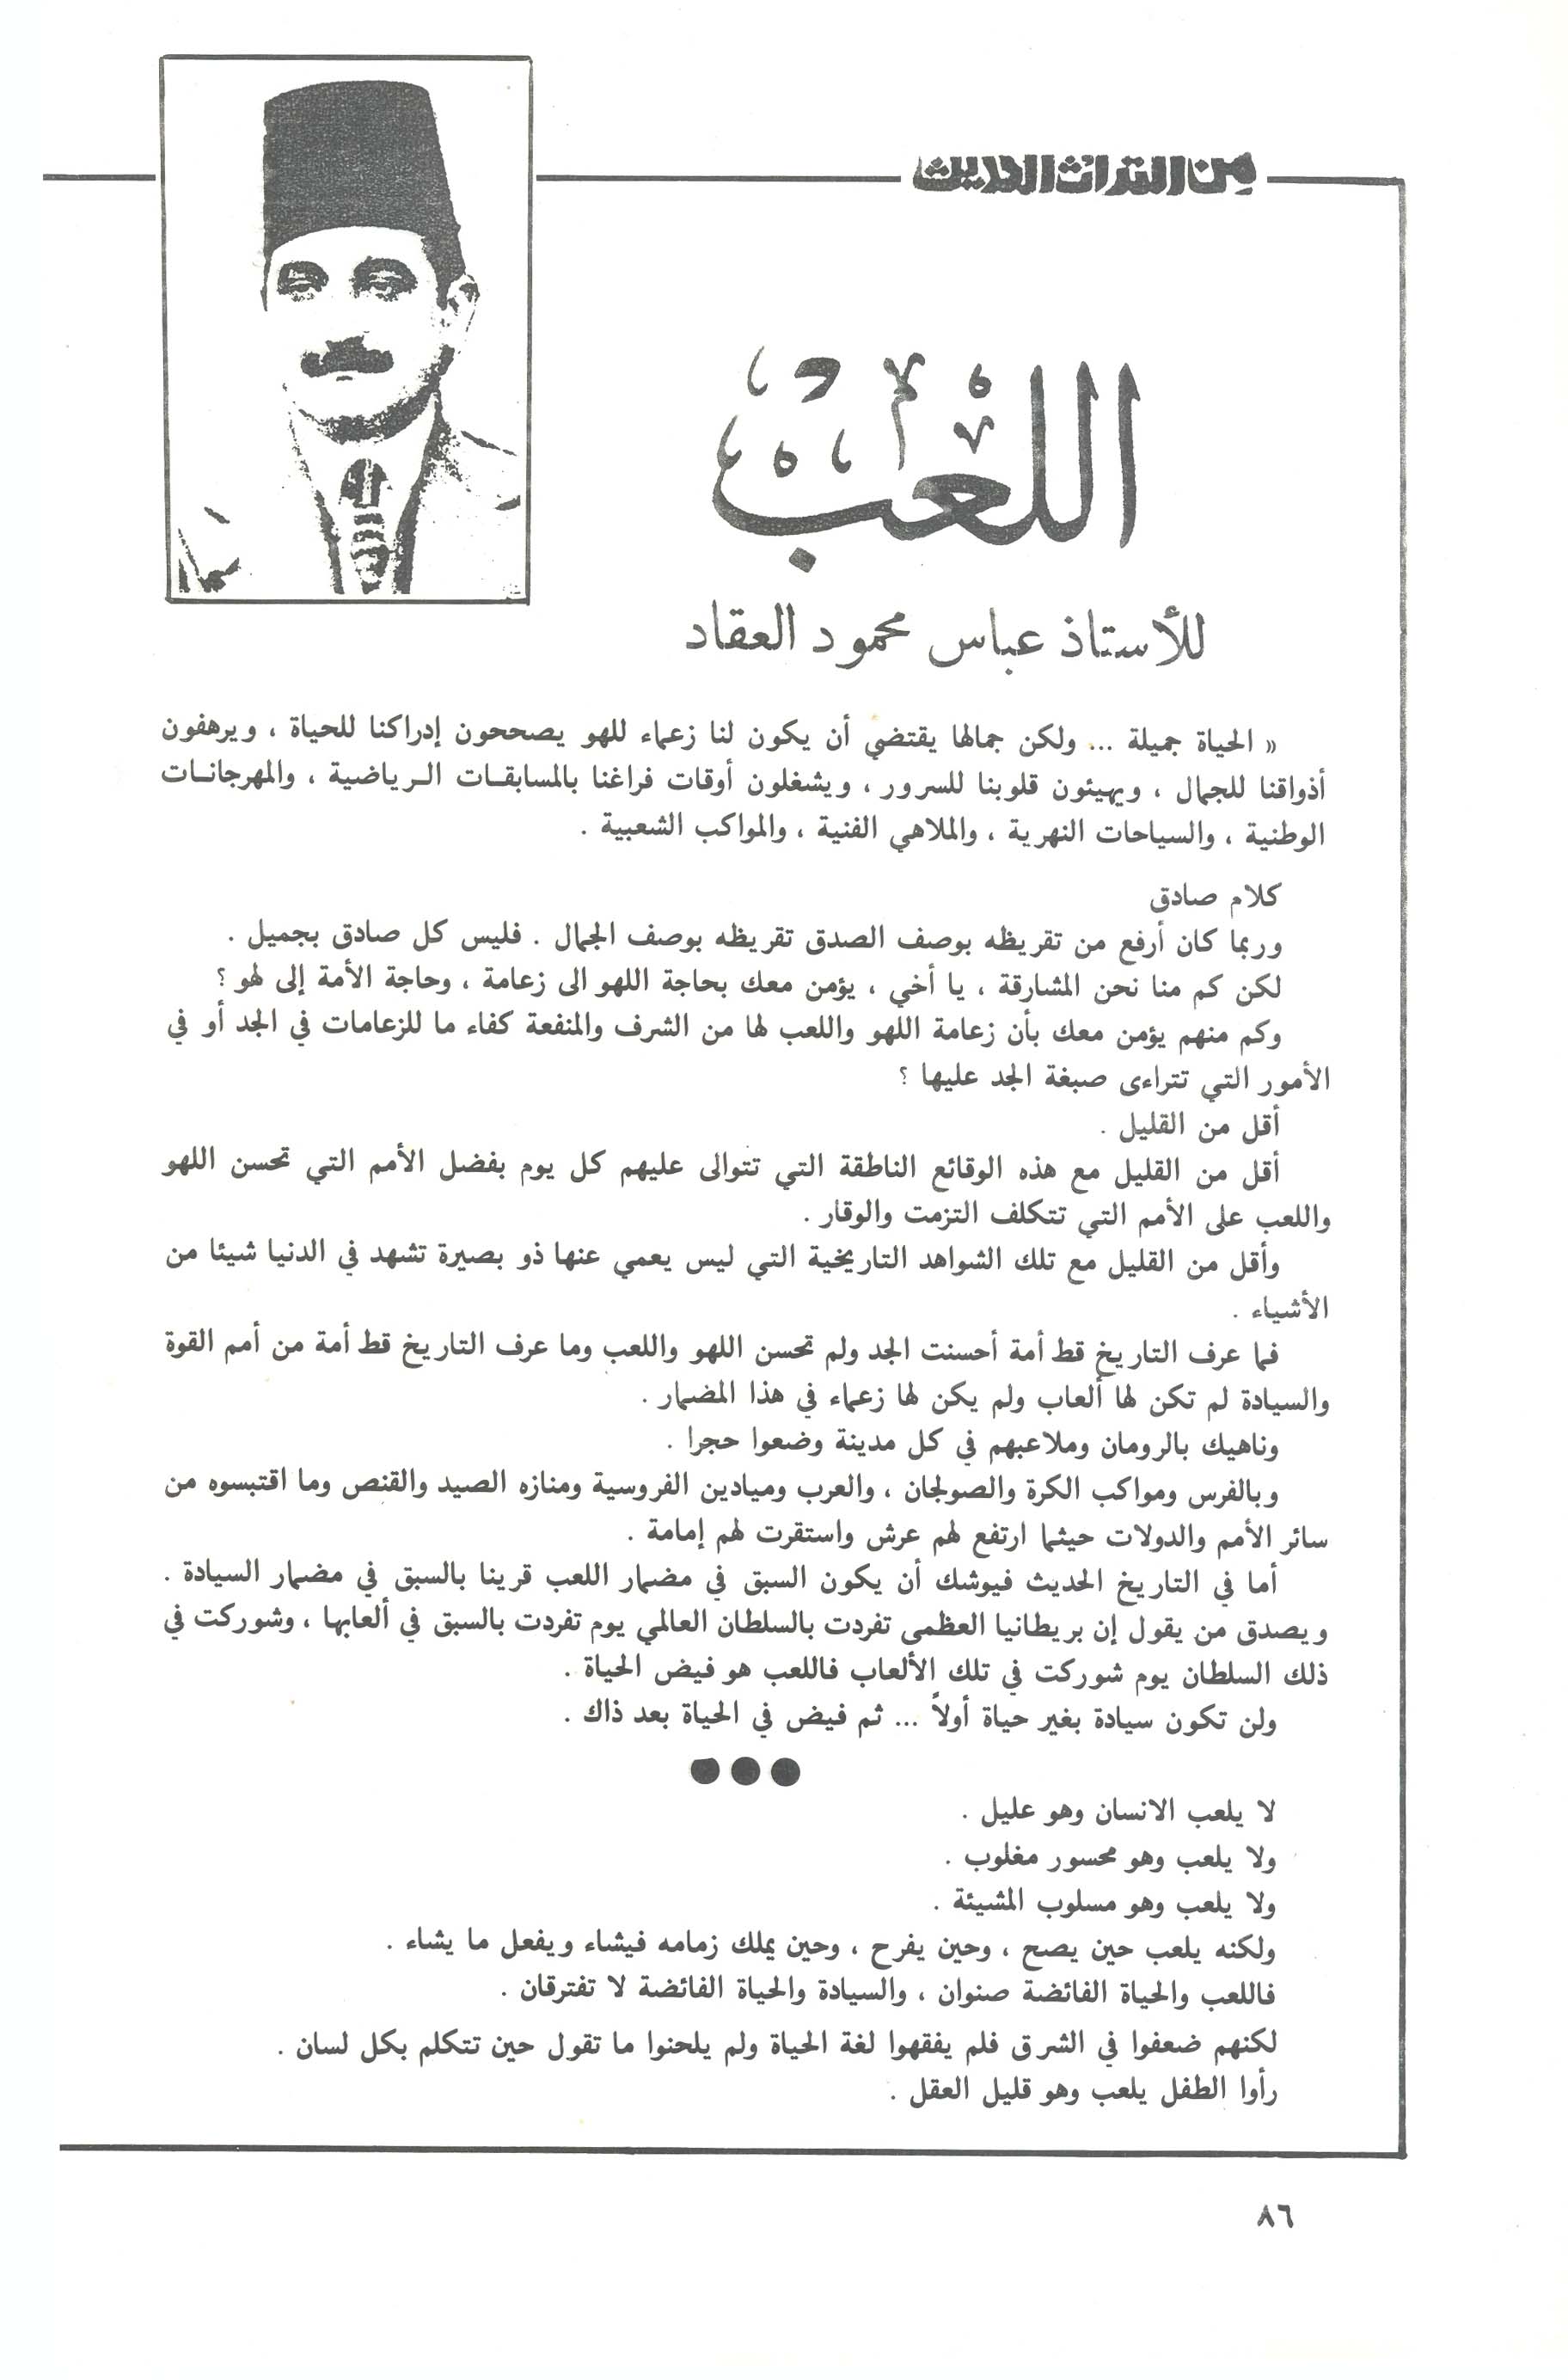 من التراث الحديث
اللعب
للأستاذ عباس محمود العقاد
« الحياة جميلة ... ولكن جمالها يقتضي أن يكون لنا زعماء للهو يصححون إدراكنا للحياة ، ويرهفون
أذواقنا للجمال ، ويهيئون قلوبنا للسرور ، ويشغلون أوقات فراغنا بالمسابقات الرياضية ، والمهرجانات
الوطنية ، والسياحات النهرية ، والملاهي الفنية ، والمواكب الشعبية .
كلام صادق
وربما كان أرفع من تقريظه بوصف الصدق تقريظه بوصف الجمال . فليس كل صادق بجميل .
لكن كم منا نحن المشارقة ، يا أخي ، يؤمن معك بحاجة اللهو الى زعامة ، وحاجة الأمة إلى لهو ؟
وكم منهم يؤمن معك بأن زعامة اللهو واللعب لها من الشرف والمنفعة كفاء ما للزعامات في الجد أو في
الأمور التي تتراءى صبغة الجد عليها ؟
أقل من القليل .
أقل من القليل مع هذه الوقائع الناطقة التي تتوالى عليهم كل يوم بفضل الأمم التي تحسن اللهو
واللعب على الأمم التي تتكلف التزمت والوقار .
وأقل من القليل مع تلك الشواهد التاريخية التي ليس يعمي عنها ذو بصيرة تشهد في الدنيا شيئا من
الأشياء .
فما عرف التاريخ قط أمة أحسنت الجد ولم تحسن اللهو واللعب وما عرف التاريخ قط أمة من أمم القوة
والسيادة لم تكن لها ألعاب ولم يكن لها زعماء في هذا المضمار .
وناهيك بالرومان وملاعبهم في كل مدينة وضعوا حجرا .
وبالفرس ومواكب الكرة والصولجان ، والعرب وميادين الفروسية ومنازه الصيد والقنص وما اقتبسوه من
سائر الأمم والدولات حيثما ارتفع لهم عرش واستقرت لهم إمامة .
أما في التاريخ الحديث فيوشك أن يكون السبق في مضمار اللعب قرينا بالسبق في مضمار السيادة .
ويصدق من يقول إن بريطانيا العظمى تفردت بالسلطان العالمي يوم تفردت بالسبق في ألعابها ، وشوركت في
ذلك السلطان يوم شوركت في تلك الألعاب فاللعب هو فيض الحياة .
ولن تكون سيادة بغير حياة أولاً ... ثم فيض في الحياة بعد ذاك .
●●●
لا يلعب الانسان وهو عليل .
ولا يلعب وهو محسور مغلوب .
ولا يلعب وهو مسلوب المشيئة .
ولكنه يلعب حين يصح ، وحين يفرح ، وحين يملك زمامه فيشاء ويفعل ما يشاء .
فاللعب والحياة الفائضة صنوان ، والسيادة والحياة الفائضة لا تفترقان .
لكنهم ضعفوا في الشرق فلم يفقهوا لغة الحياة ولم يلحنوا ما تقول حين تتكلم بكل لسان .
رأوا الطفل يلعب وهو قليل العقل .
٨٦